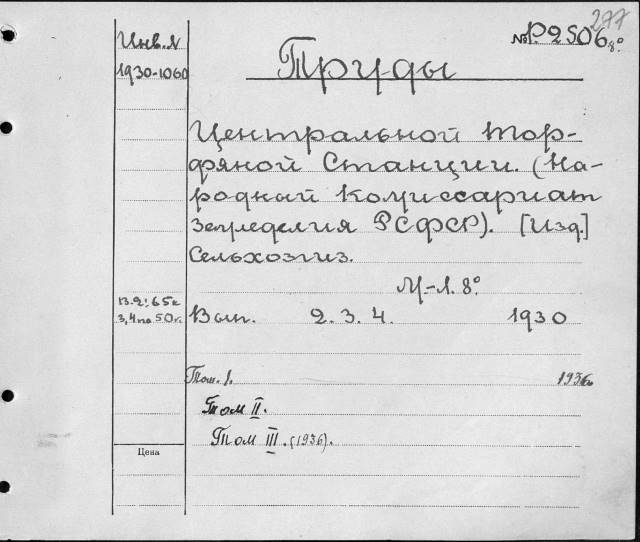 277
Инв. №
№ Р.2506 8°
1930-1060
Труды
Центральной Тор-
фяной Станции. (На-
родный Комиссариат
Земледелия РСФСР). [Изд.]
Сельхозгиз.
М.-Л. 8°.
В.2! 65к
3,4 по 50к.
Вып. 2. 3. 4. 1930
Том. I. 1936
Том II.
Том III. (1936).
Цена